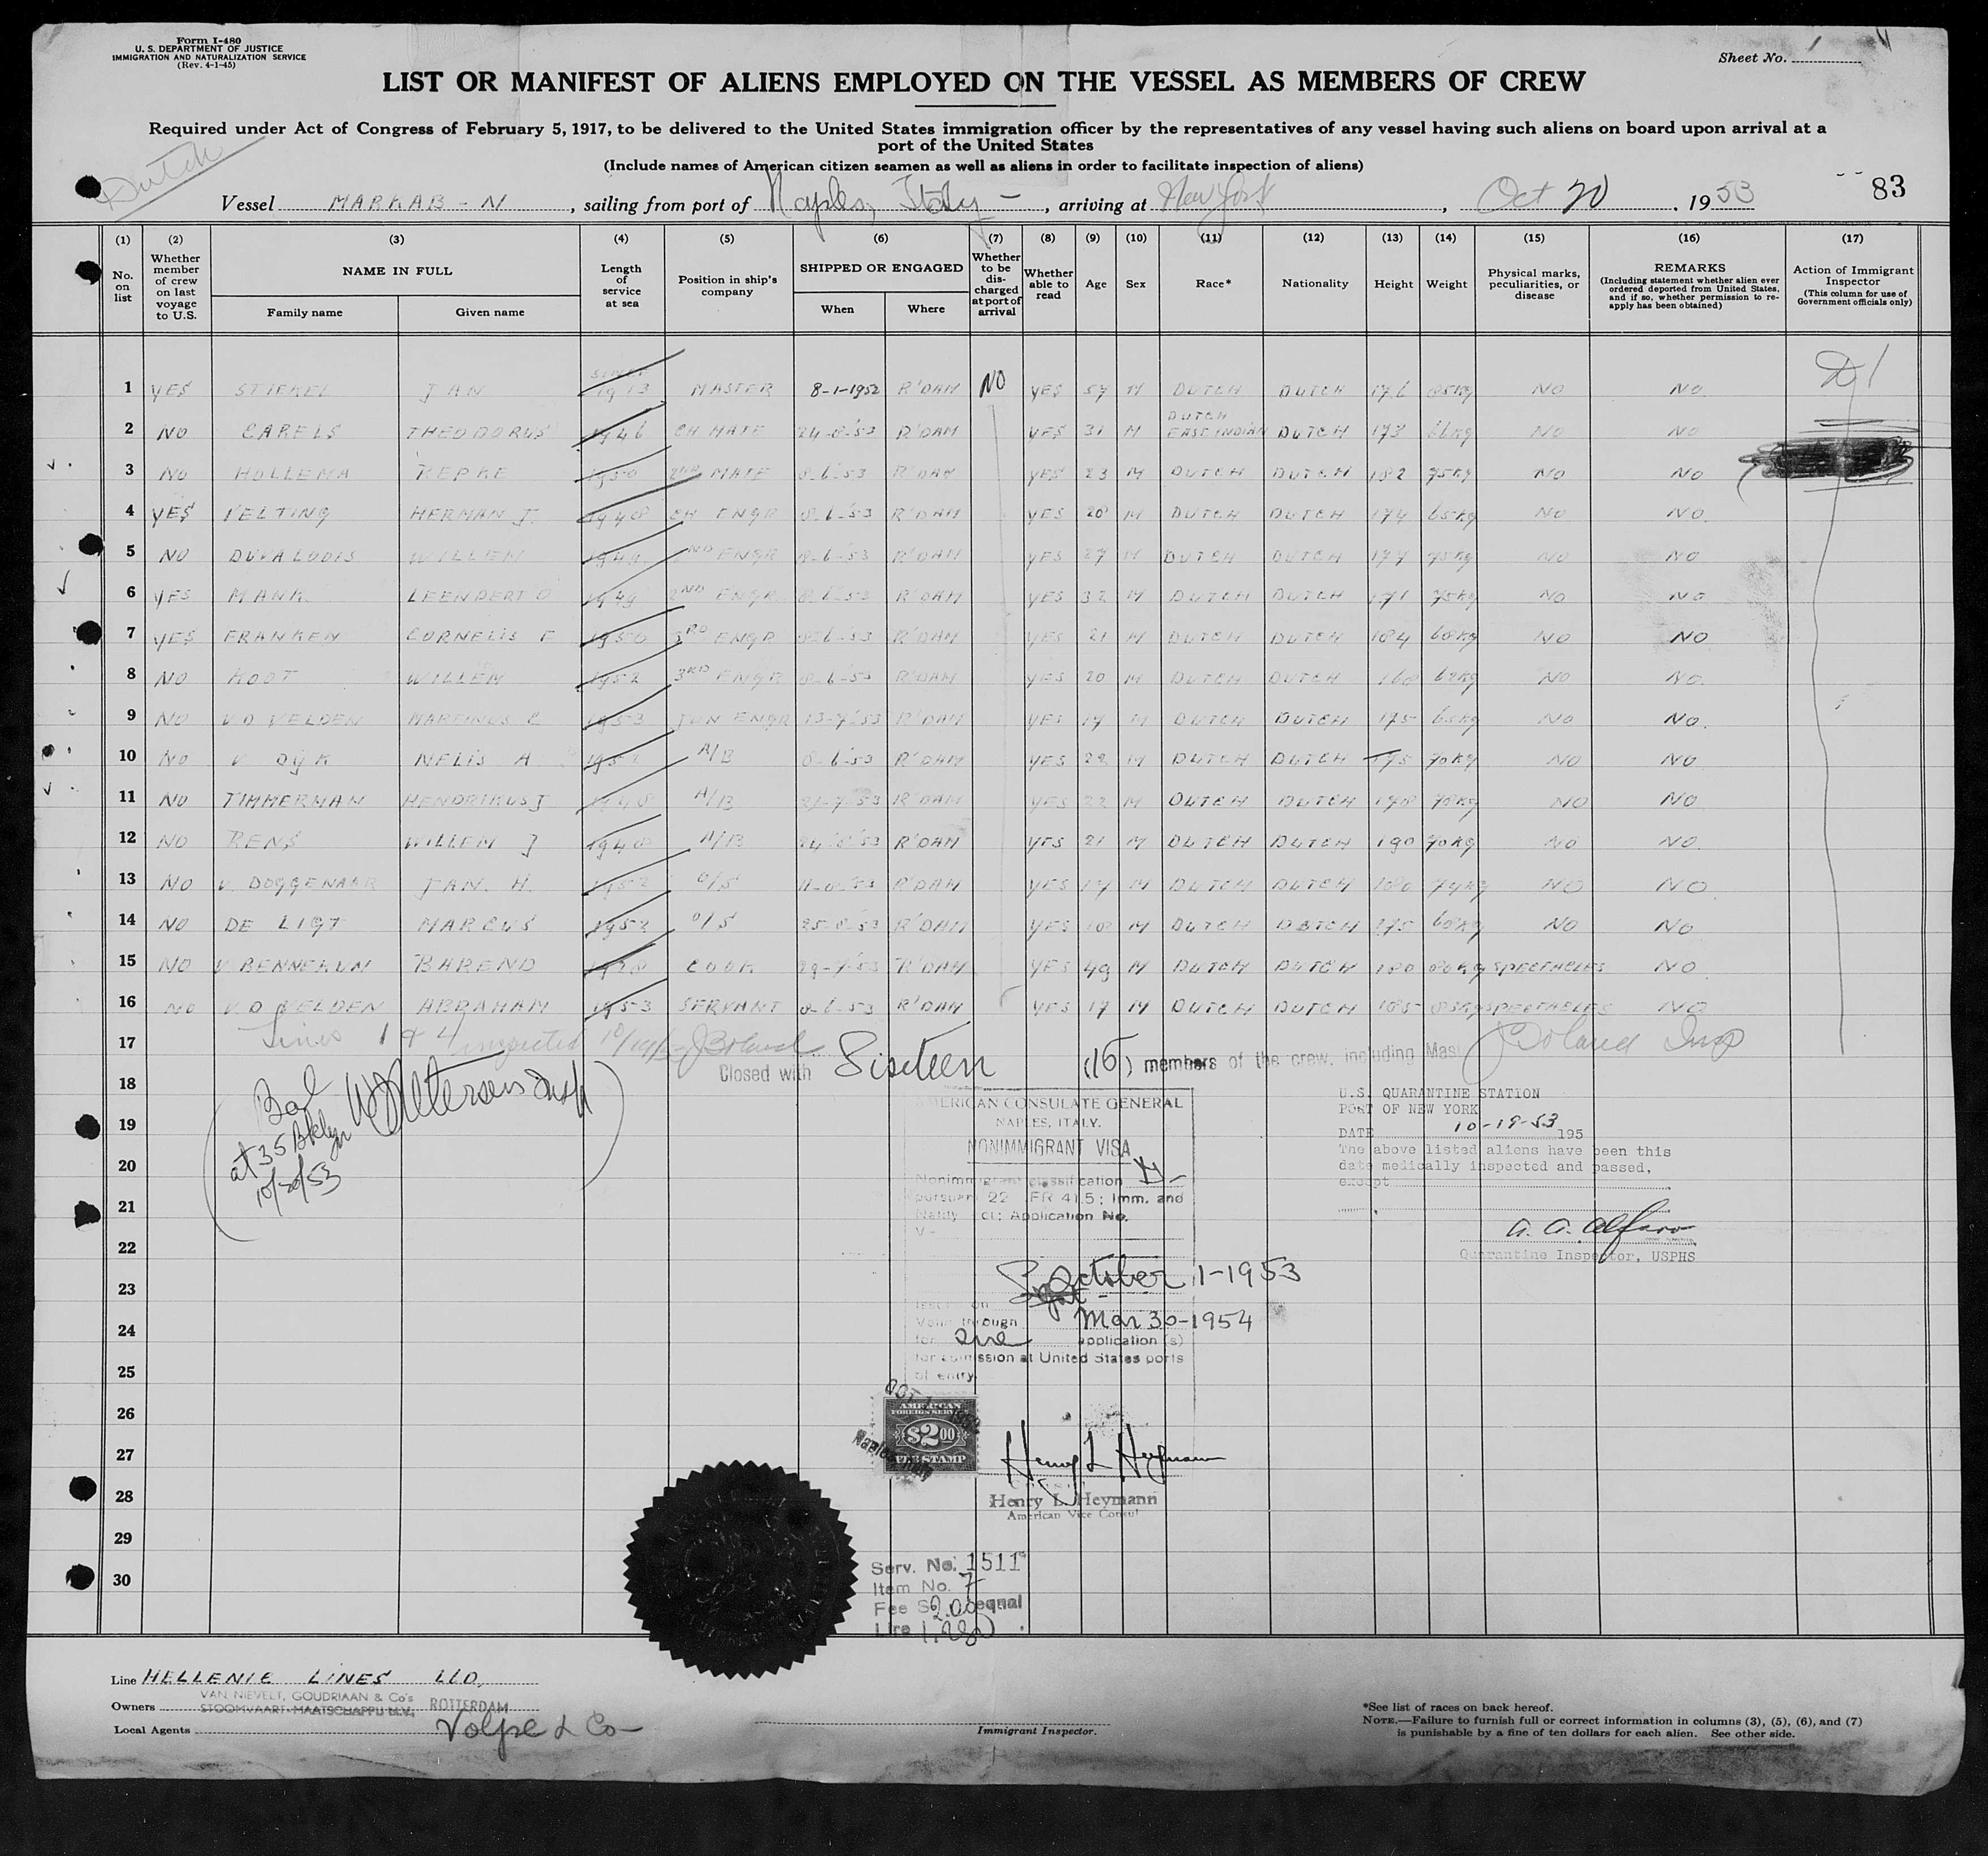 Form I-480
U. S. DEPARTMENT OF JUSTICE
IMMIGRATION AND NATURALIZATION SERVICE
(Rev. 4-1-45)
Sheet No. 1
LIST OR MANIFEST OF ALIENS EMPLOYED ON THE VESSEL AS MEMBERS OF CREW
Required under Act of Congress of February 5, 1917, to be delivered to the United States immigration officer by the representatives of any vessel having such aliens on board upon arrival at a
port of the United States
(Include names of American citizen seamen as well as aliens in order to facilitate inspection of aliens)
Dutch
83
Vessel MARKAB - N, sailing from port of Naples, Italy, arriving at New York, Oct 20, 1953
(1) No. on list
(2) Whether member of crew on last voyage to U.S.
(3) NAME IN FULL Family name Given name
(4) Length of service at sea
(5) Position in ship's company
(6) SHIPPED OR ENGAGED When Where
(7) Whether to be discharged at port of arrival
(8) Whether able to read
(9) Age
(10) Sex
(11) Race*
(12) Nationality
(13) Height
(14) Weight
(15) Physical marks, peculiarities, or disease
(16) REMARKS (Including statement whether alien ever ordered deported from United States, and if so, whether permission to re-apply has been obtained)
(17) Action of Immigrant Inspector (This column for use of Government officials only)
1 YES STIEKEL JAN SINCE 1913 MASTER 8-1-1952 R'DAM NO YES 57 M DUTCH DUTCH 176 85kg NO NO
2 NO CARELS THEODORUS 1946 CH MATE R'DAM YES 31 M DUTCH EAST INDIAN DUTCH 173 66kg NO NO
3 NO HOLLEMA REPKE 1950 2ND MATE R'DAM YES 23 M DUTCH DUTCH 182 75kg NO NO
4 YES VELTING HERMAN J. CH ENGR R'DAM YES M DUTCH DUTCH 174 65kg NO NO
5 NO WILLEM 2ND ENGR R'DAM YES 27 M DUTCH DUTCH 177 75kg NO NO
6 YES MANK LEENDERT D 2ND ENGR R'DAM YES 32 M DUTCH DUTCH 171 75kg NO NO
7 YES FRANKEN CORNELIS F 1950 3RD ENGR R'DAM YES 21 M DUTCH DUTCH 184 68kg NO NO
8 NO KOOT WILLEM 1952 3RD ENGR R'DAM YES 20 M DUTCH DUTCH 168 62kg NO NO
9 NO V D VELDEN MARTINUS C 1953 JUN ENGR 13-7-'53 R'DAM YES M DUTCH DUTCH 175 65kg NO NO
10 NO V DYK NELIS A 1952 A/B R'DAM YES 22 M DUTCH DUTCH 175 70kg NO NO
11 NO TIMMERMAN HENDRIKUS J 1948 A/B 21-7-'53 R'DAM YES 22 M DUTCH DUTCH 178 78kg NO NO
12 NO RENS WILLEM J 1948 A/B R'DAM YES 21 M DUTCH DUTCH 190 70kg NO NO
13 NO V. DOGGENAAR JAN H. 1952 O/S R'DAM YES M DUTCH DUTCH 180 74kg NO NO
14 NO DE LIGT MARCUS 1952 O/S 25-8-'53 R'DAM YES 18 M DUTCH DUTCH 175 68kg NO NO
15 NO V BENNEKUM BAREND 1928 COOK 29-7-'53 R'DAM YES 49 M DUTCH DUTCH 180 80kg SPECTACLES NO
16 NO V D VELDEN ABRAHAM 1953 SERVANT R'DAM YES 17 M DUTCH DUTCH 185 SPECTACLES NO
17 Lines 1 & 4 inspected 10/19/53 J Boland
Closed with Sixteen (16) members of the crew, including Mas
J Boland Insp
18
19
20
21
22
23
24
25
26
27
28
29
30
Bal
at 35 Bklyn
10/20/53
AMERICAN CONSULATE GENERAL
NAPLES, ITALY.
NONIMMIGRANT VISA
Nonimmigrant classification D
pursuant 22 CFR 41.5; Imm. and
Natlty Act; Application No.
V-
October 1-1953
Valid through Mar 30-1954
for one application (s)
for admission at United States ports
of entry.
U.S. QUARANTINE STATION
PORT OF NEW YORK
DATE 10-19-53 195
The above listed aliens have been this
date medically inspected and passed,
except
A. A. Alfaro
Quarantine Inspector, USPHS
Naples, Italy
AMERICAN
FOREIGN SERVICE
$2.00
FEE STAMP
Henry L Heymann
Henry L. Heymann
American Vice Consul
Serv. No. 1511
Item No. 7
Fee $2.00 equal
Lire 1,280
Line HELLENIC LINES LTD.
Owners VAN NIEVELT, GOUDRIAAN & Co's
STOOMVAART-MAATSCHAPPIJ N.V. ROTTERDAM
Local Agents Volpe & Co
Immigrant Inspector.
*See list of races on back hereof.
NOTE.—Failure to furnish full or correct information in columns (3), (5), (6), and (7)
is punishable by a fine of ten dollars for each alien. See other side.